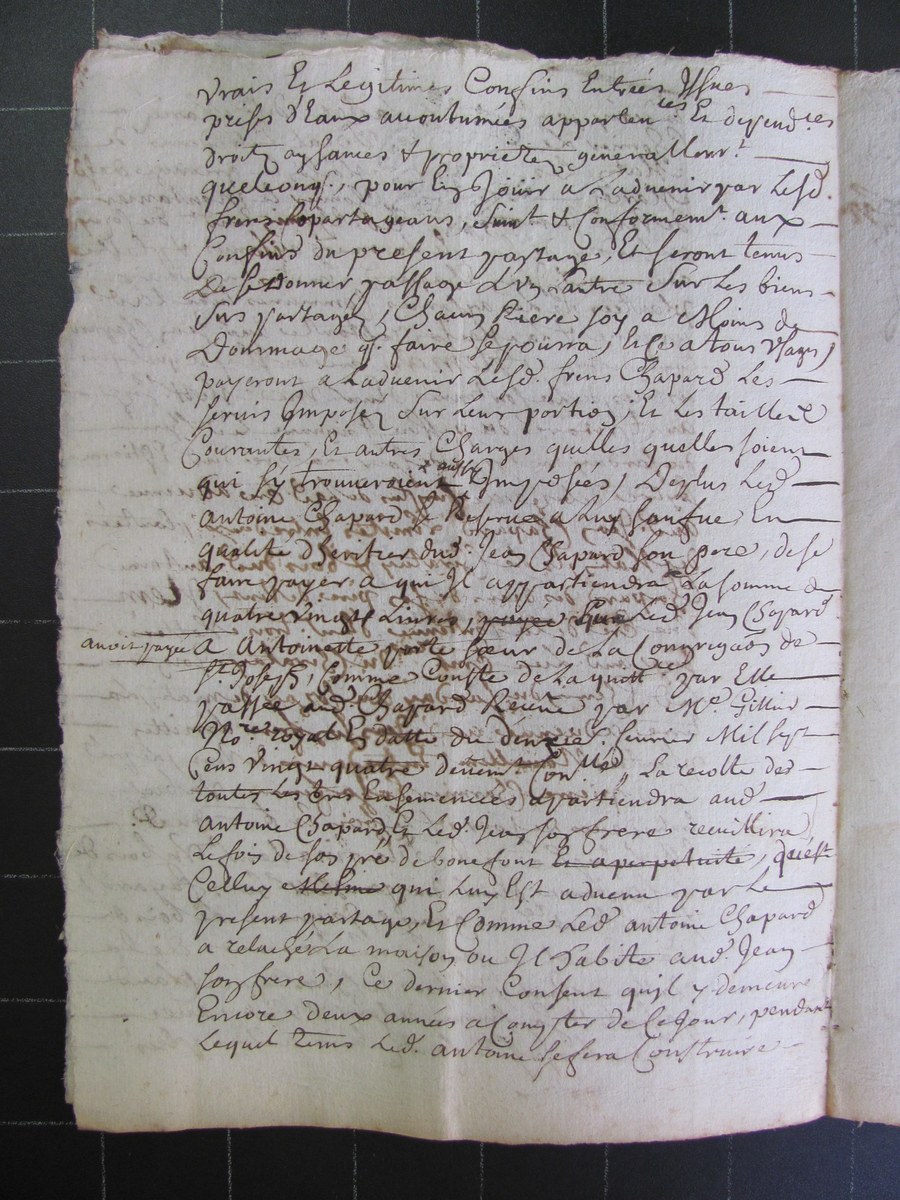 vrais Et Legitimes Confins Entrées Yssues
prises d'Eaux acoutumées apparten.ces Et depend.ces
droitz aysances & proprietez generallem.t
quelconq.s, pour En Jouir a Laduenir par Lesd.
freres copartageans, suiut. & Conformem.t aux
Confins du present partage, Et seront tenus
De se donner passage L'vn Lautre Sur Les biens
Sus partagez, Chacun Riere soy a Moins de
Dommage q.e faire se pourra, Et Ce a tous vsages,
payeront a Laduenir Lesd. freres Chapard Les
seruis Imposez Sur Leur portion, Et Les tailles
Courantes, Et autres Charges quelles quelles soient
qui s'y trouueroient aussy Imposées, Deplus Led.
Antoine Chapard se Reserue a Luy sauf En
qualité d'heritier dud. Jean Chapard son pere, de se
faire payer a qui Il appartiendra La somme de
quatre vingt Liures, payée que Led. Jean Chapard
auoit payée A Antoinette sœur de La Congregaõn de
St. Joseph, Comme Conste de La quitt.ce par Elle
passée aud. Chapard Receue par M.e
No.re royal En datte du feurier Mil sept
Cens Vingt quatre deuem.t Con.llée, La recolte des
toutes Les tres Ensemencées apartiendra aud.
antoine Chapard, Et Led. Jean son frere recuillira
Le foin de son pré de bonefont Et a perpetuité, qui est
Celluy Mesme qui Luy Est aduenu par Le
present partage, Et Comme Led. antoine Chapard
a relaché La maison ou Il habite aud. Jean
son frere, Ce dernier Consent qu'jl y demeure
Encore deux années a Compter de Ce Jour, pendant
Lequel tems Led. antoine se fera Construire